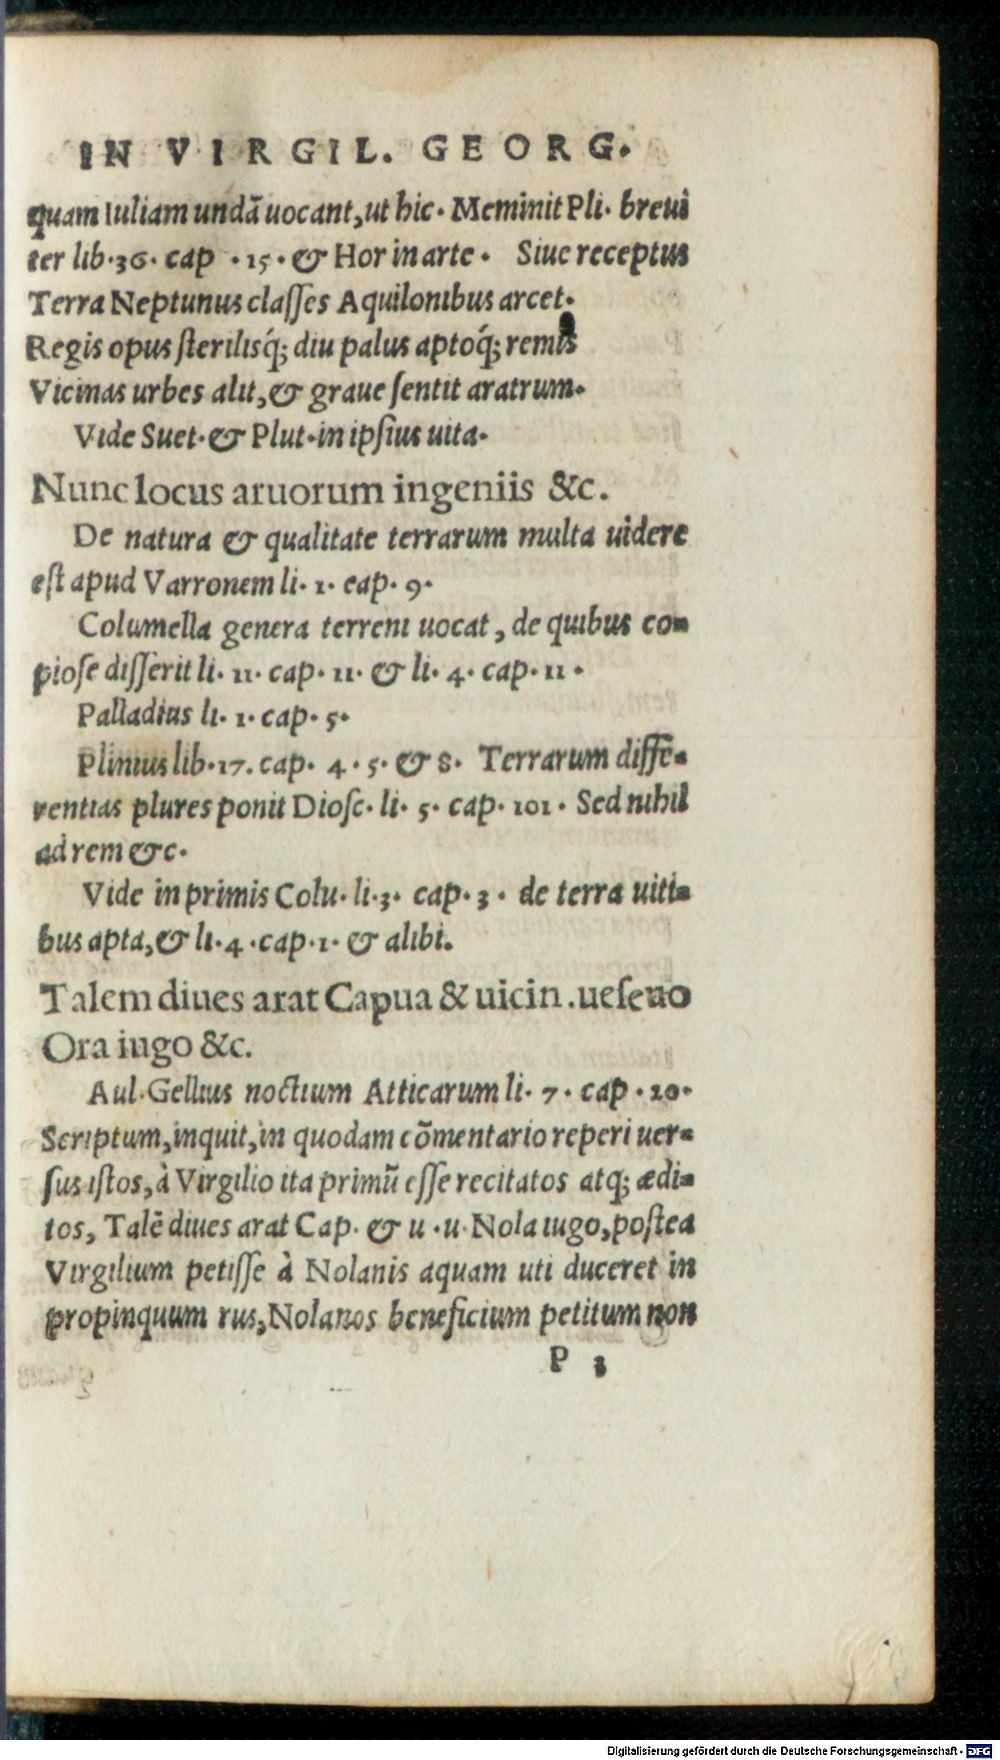 IN VIRGIL. GEORG.
quam Iuliam undã uocant, ut hic. Meminit Pli. breui
ter lib. 36. cap. 15. & Hor in arte. Siue receptus
Terra Neptunus classes Aquilonibus arcet.
Regis opus sterilisq́; diu palus aptoq́; remis
Vicinas urbes alit, & graue sentit aratrum.
Vide Suet. & Plut. in ipsius uita.
Nunc locus aruorum ingeniis &c.
De natura & qualitate terrarum multa uidere
est apud Varronem li. 1. cap. 9.
Columella genera terreni uocat, de quibus co-
piose disserit li. 11. cap. 11. & li. 4. cap. 11.
Palladius li. 1. cap. 5.
Plinius lib. 17. cap. 4. 5. & 8. Terrarum diffe-
rentias plures ponit Diosc. li. 5. cap. 101. Sed nihil
ad rem &c.
Vide in primis Colu. li. 3. cap. 3. de terra uiti-
bus apta, & li. 4. cap. 1. & alibi.
Talem diues arat Capua & uicin. ueseuo
Ora iugo &c.
Aul. Gellius noctium Atticarum li. 7. cap. 20.
Scriptum, inquit, in quodam cõmentario reperi uer-
sus istos, à Virgilio ita primũ esse recitatos atq; ædi-
tos, Talẽ diues arat Cap. & u. u. Nola iugo, postea
Virgilium petisse à Nolanis aquam uti duceret in
propinquum rus, Nolanos beneficium petitum non
P 3
Digitalisierung gefördert durch die Deutsche Forschungsgemeinschaft - DFG